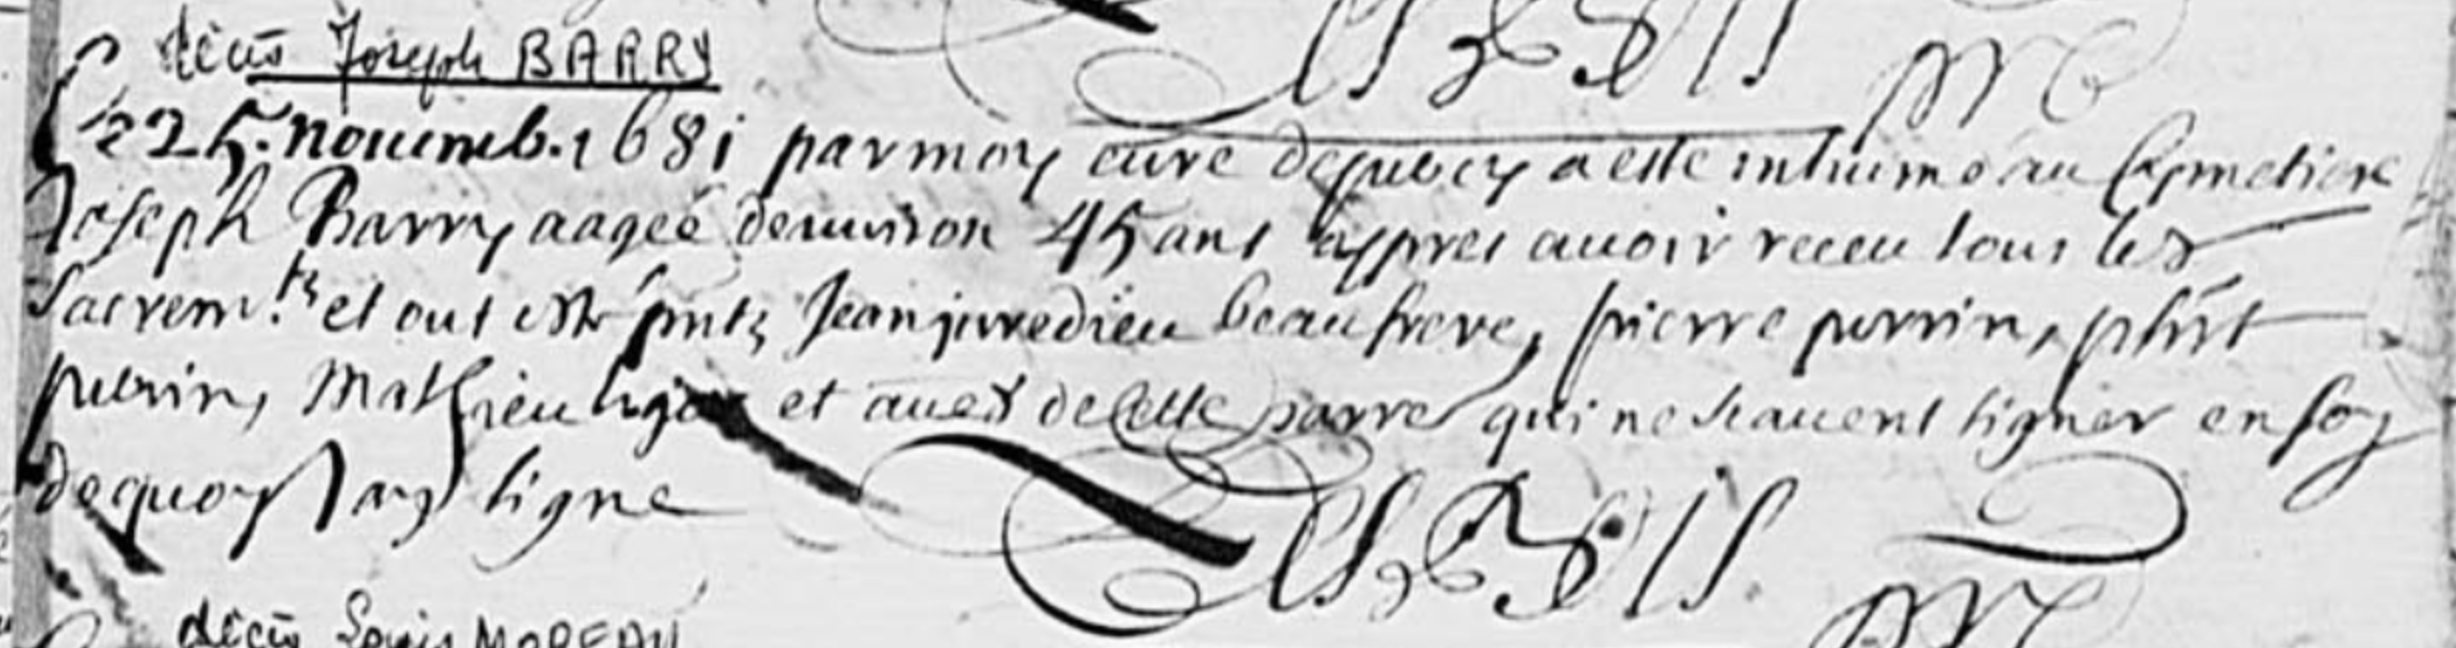 décès Joseph BARRY
Ce 25. nouemb. 1681 par moy curé de a esté inhumé au Cymetiere
Joseph Barry aageé denuiron 45 ans appres auoir receu tous les
Sacrem.ts et ont esté pnts Jean juredieu beaufrere, pierre perrin, phbt
perrin, Mathieu et aues de cette parre qui ne scauent signer en foy
dequoy Jay signe
décès Louis MOREAU